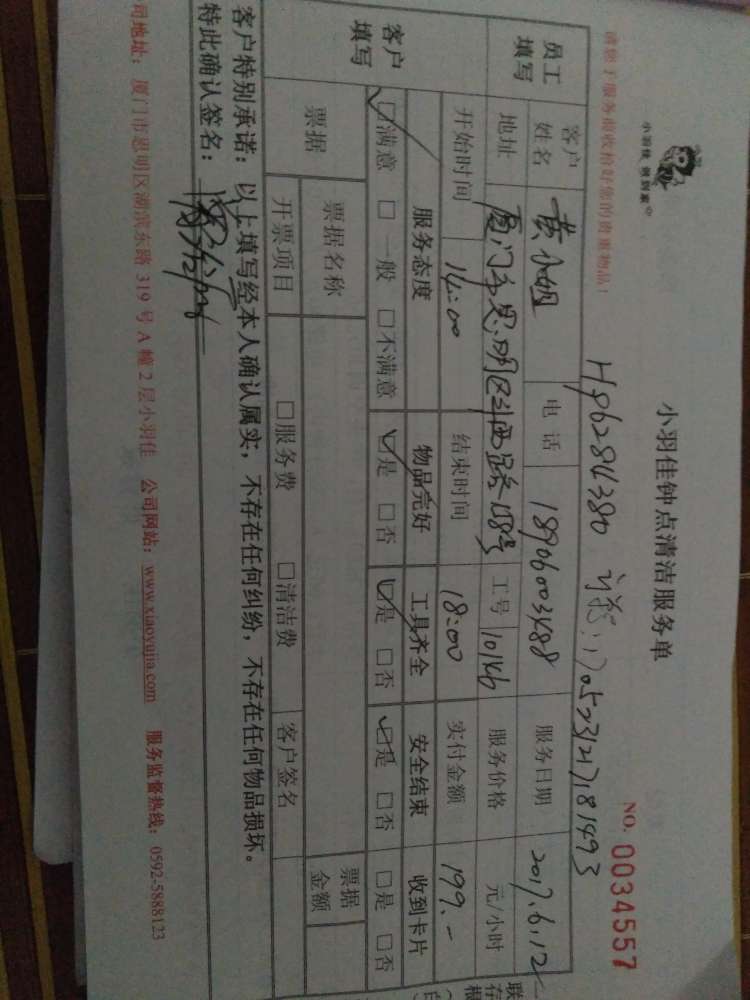 小羽佳 做到家
小羽佳钟点清洁服务单
NO. 0034557
请您于服务前收拾好您的贵重物品！
H962846380
员工填写 客户姓名 黄小姐 电话 18906003488 服务日期 2017.6.12
地址 厦门市思明区斗西路 工号 服务价格 元/小时
开始时间 14:00 结束时间 18:00 实付金额 199.-
客户填写 服务态度 物品完好 工具齐全 安全结束 收到卡片
☑满意 □一般 □不满意 ☑是 □否 ☑是 □否 ☑是 □否 □是 □否
票据 票据名称 票据金额
开票项目 □服务费 □清洁费 客户签名
客户特别承诺：以上填写经本人确认属实，不存在任何纠纷，不存在任何物品损坏。
特此确认签名：
司地址：厦门市思明区湖滨东路319号A幢2层小羽佳 公司网站：www.xiaoyujia.com 服务监督热线：0592-5888123